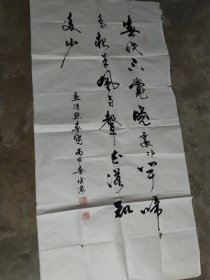 春眠不覺曉處處聞啼
鳥夜来風雨聲花落知
多少
孟浩然春曉丙申